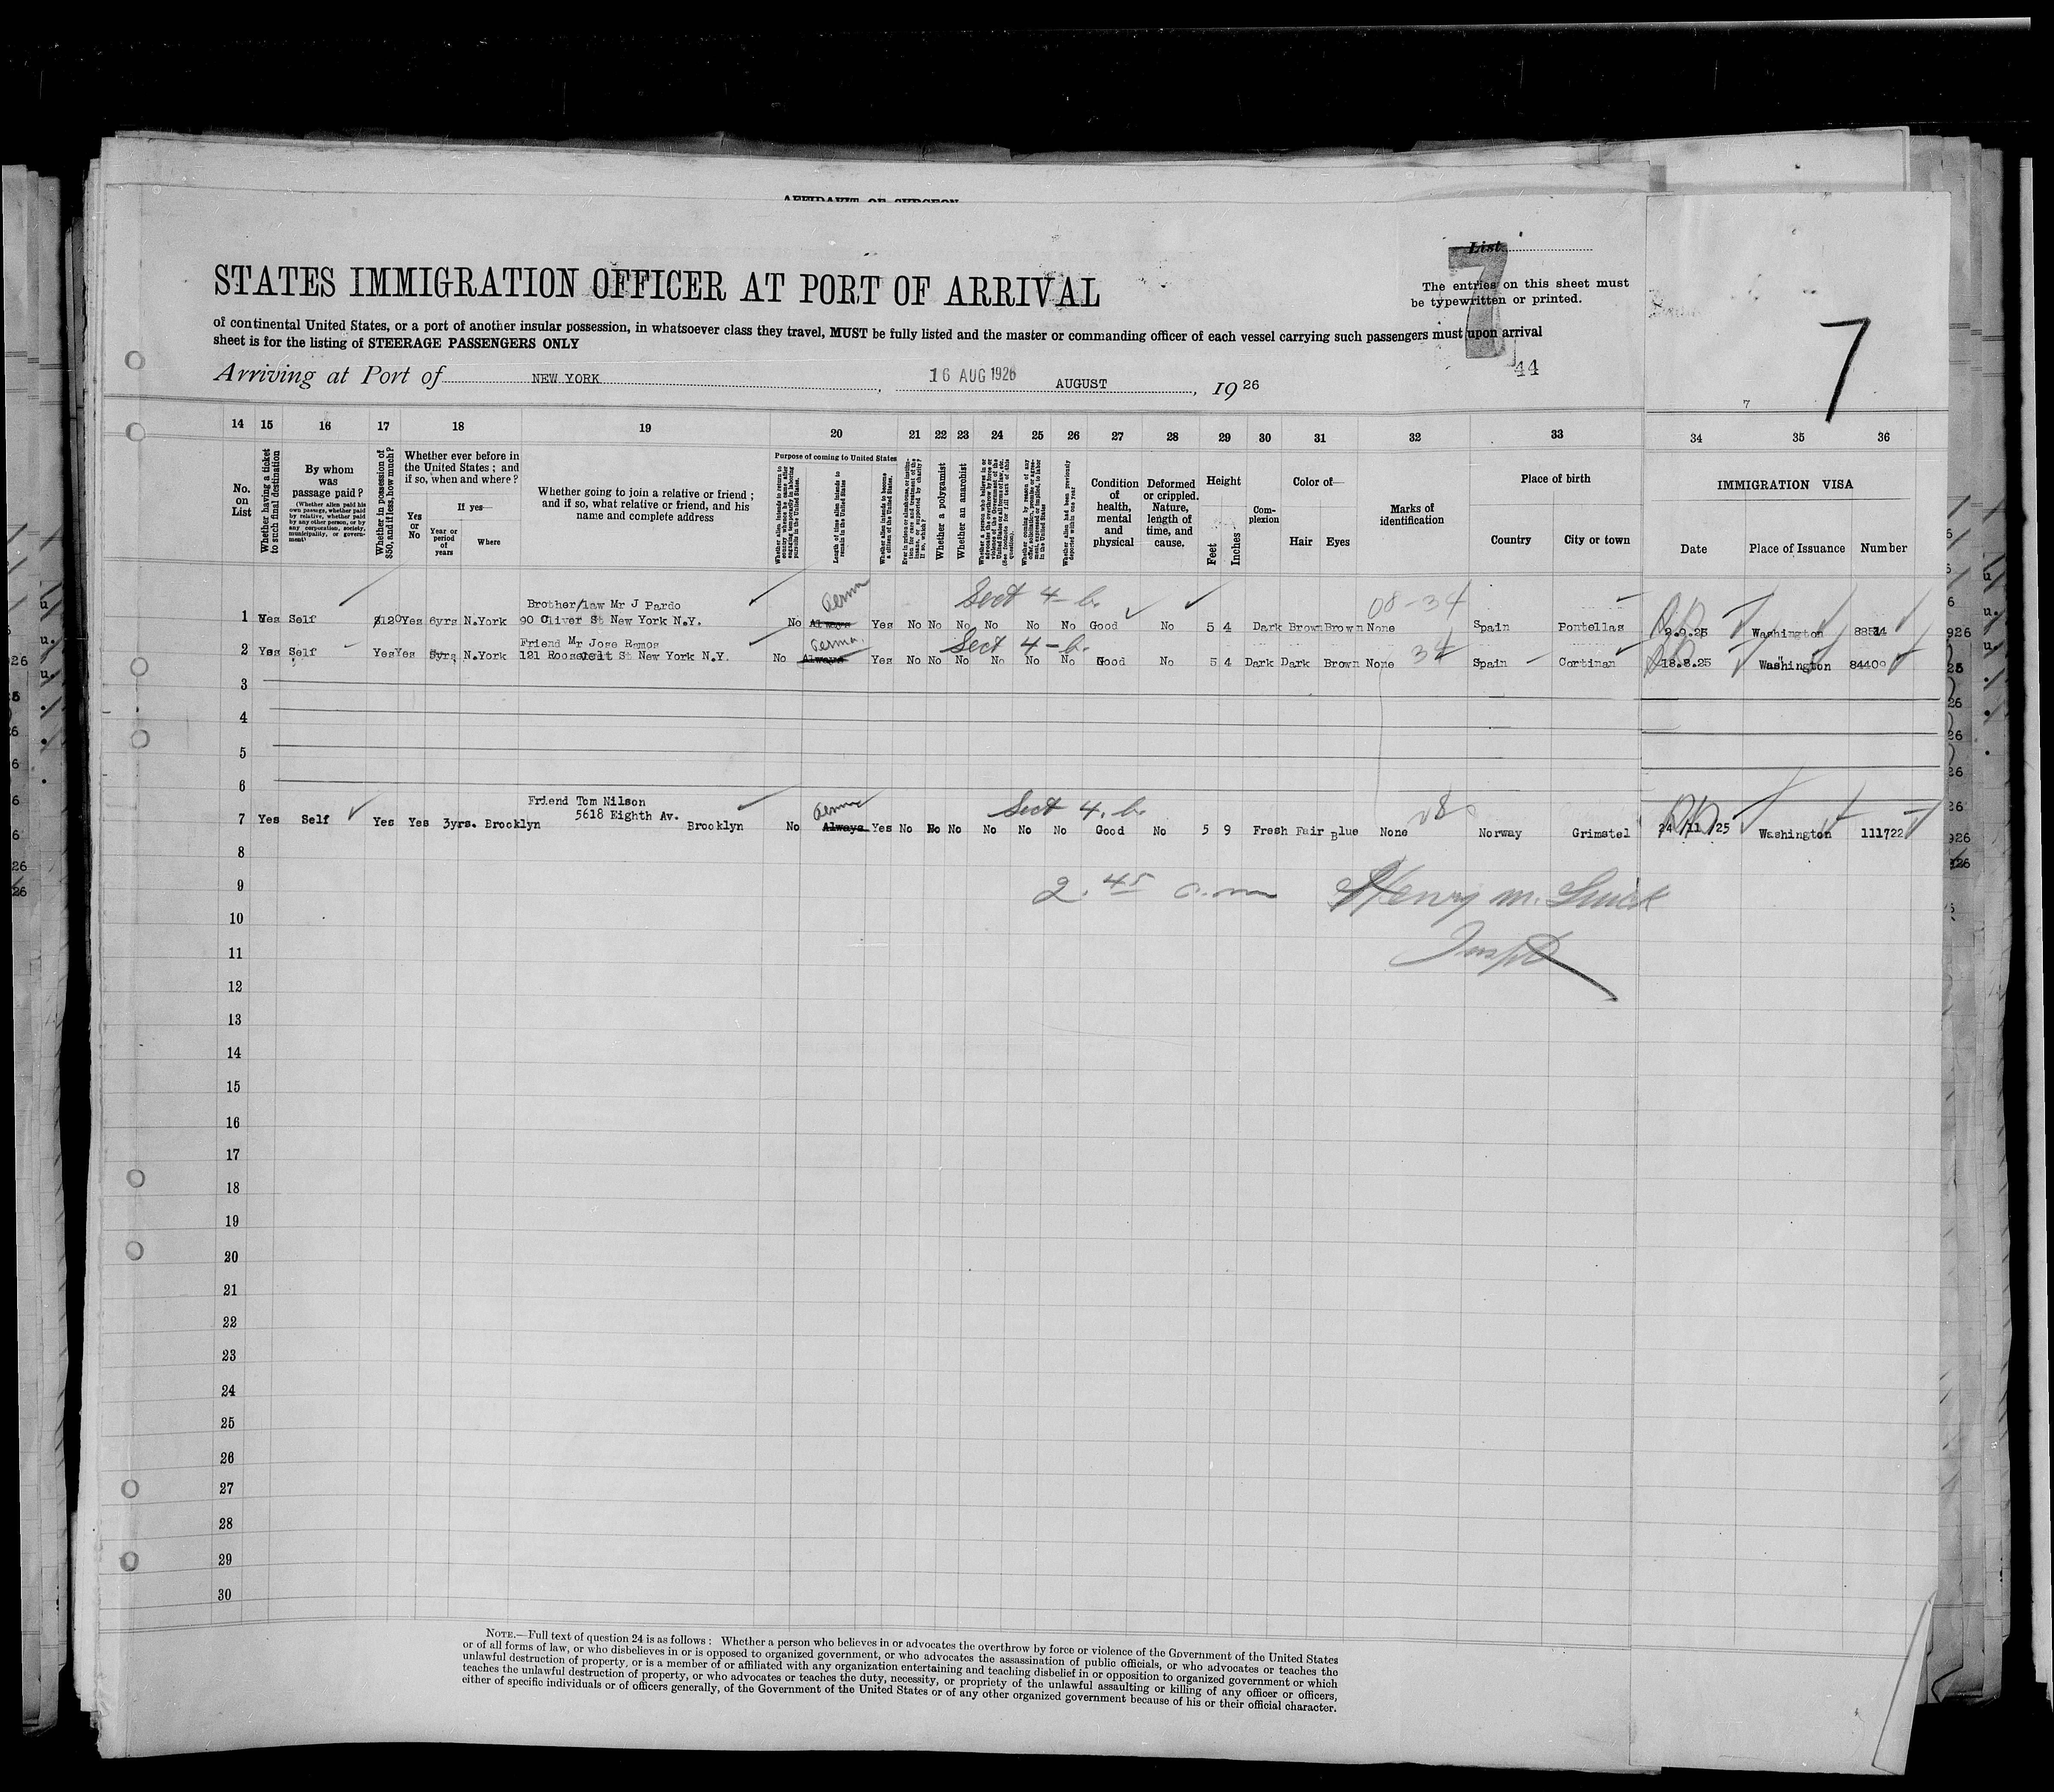 AFFIDAVIT OF SURGEON
List
7
STATES IMMIGRATION OFFICER AT PORT OF ARRIVAL
The entries on this sheet must
be typewritten or printed.
of continental United States, or a port of another insular possession, in whatsoever class they travel, MUST be fully listed and the master or commanding officer of each vessel carrying such passengers must upon arrival
sheet is for the listing of STEERAGE PASSENGERS ONLY
7
44
Arriving at Port of NEW YORK, 16 AUG 1926 AUGUST, 19 26
7
14 15 16 17 18 19 20 21 22 23 24 25 26 27 28 29 30 31 32 33 34 35 36
No. on List
Whether having a ticket to such final destination
By whom was passage paid?
(Whether alien paid his own passage, whether paid by relative, whether paid by any other person, or by any corporation, society, municipality, or government)
Whether in possession of $50, and if less, how much?
Whether ever before in the United States; and if so, when and where?
Yes or No
If yes—
Year or period of years
Where
Whether going to join a relative or friend; and if so, what relative or friend, and his name and complete address
Purpose of coming to United States
Whether alien intends to return to country whence he came after engaging temporarily in laboring pursuits in the United States.
Length of time alien intends to remain in the United States
Whether alien intends to become a citizen of the United States.
Ever in prison or almshouse, or institution for care and treatment of the insane, or supported by charity? If so, which?
Whether a polygamist
Whether an anarchist
Whether a person who believes in or advocates the overthrow by force or violence of the Government of the United States or all forms of law, etc. (See footnote for full text of this question).
Whether coming by reason of any offer, solicitation, promise or agreement, expressed or implied, to labor in the United States
Whether alien had been previously deported within one year
Condition of health, mental and physical
Deformed or crippled. Nature, length of time, and cause.
Height
Feet
Inches
Complexion
Color of—
Hair Eyes
Marks of identification
Place of birth
Country City or town
IMMIGRATION VISA
Date Place of Issuance Number
Perma Sect 4-b. 08-34
Brother/law Mr J Pardo
1 Yes Self $120 Yes 6yrs N.York 90 Oliver St New York N.Y. No Always Yes No No No No No No Good No 5 4 Dark Brown Brown None Spain Pontellas 9.9.25 Washington
Perma. Sect 4-b. 34
Friend Mr Jose Ramos
2 Yes Self Yes Yes 5yrs N.York 121 Roosevelt St New York N.Y. No Always Yes No No No No No No Good No 5 4 Dark Dark Brown None Spain Cortinan 18.8.25 Washington 84409
3
4
5
6
Friend Tom Nilson
5618 Eighth Av.
Perma Sect 4. b. 08
7 Yes Self Yes Yes 3yrs. Brooklyn Brooklyn No Always Yes No No No No No No Good No 5 9 Fresh Fair Blue None Norway Grimstel 24/11/25 Washington 111722
8
9 2.45 a.m Henry M.
10
11 Inspt
12
13
14
15
16
17
18
19
20
21
22
23
24
25
26
27
28
29
30
NOTE.—Full text of question 24 is as follows: Whether a person who believes in or advocates the overthrow by force or violence of the Government of the United States
or of all forms of law, or who disbelieves in or is opposed to organized government, or who advocates the assassination of public officials, or who advocates or teaches the
unlawful destruction of property, or is a member of or affiliated with any organization entertaining and teaching disbelief in or opposition to organized government or which
teaches the unlawful destruction of property, or who advocates or teaches the duty, necessity, or propriety of the unlawful assaulting or killing of any officer or officers,
either of specific individuals or of officers generally, of the Government of the United States or of any other organized government because of his or their official character.